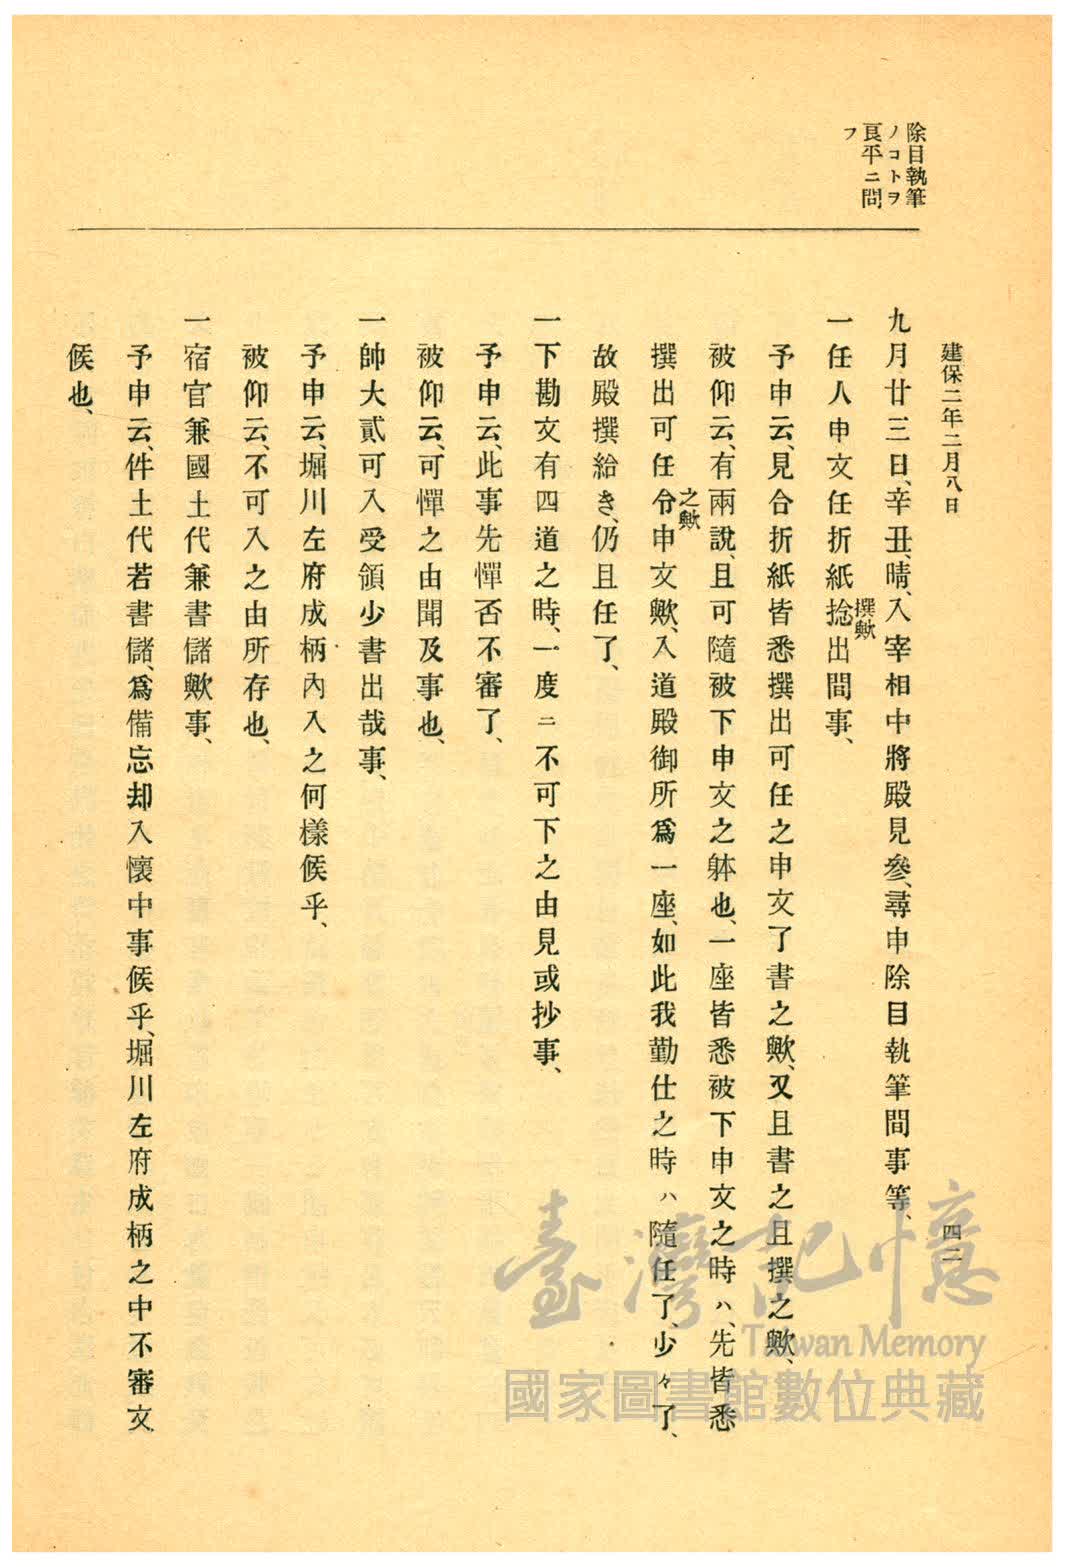 除目執筆
ノコトヲ
良平ニ問
フ
建保二年二月八日
四二
九月廿三日、辛丑、晴、入宰相中將殿見參、尋申除目執筆間事等、
一任人申文任折紙捻出間事、
撰歟
予申云、見合折紙皆悉撰出可任之申文了書之歟、又且書之且撰之歟、
被仰云、有兩說、且可隨被下申文之躰也、一座皆悉被下申文之時ハ、先皆悉
撰出可任令申文歟、入道殿御所爲一座、如此我勤仕之時ハ隨任了、少々了、
之歟
故殿撰給き、仍且任了、
一下勘文有四道之時、一度ニ不可下之由見或抄事、
予申云、此事先憚否不審了、
被仰云、可憚之由聞及事也、
一帥大貳可入受領少書出哉事、
予申云、堀川左府成柄內入之何樣候乎、
被仰云、不可入之由所存也、
一宿官兼國土代兼書儲歟事、
予申云、件土代若書儲、爲備忘却入懷中事候乎、堀川左府成柄之中不審文
候也、
臺灣記憶
Taiwan Memory
國家圖書館數位典藏